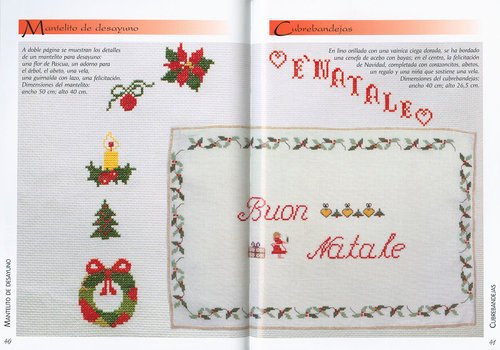 Mantelito de desayuno
A doble página se muestran los detalles
de un mantelito para desayuno:
una flor de Pascua, un adorno para
el árbol, el abeto, una vela,
una guirnalda con lazo, una felicitación.
Dimensiones del mantelito:
ancho 50 cm; alto 40 cm.
MANTELITO DE DESAYUNO
46
Cubrebandejas
En lino orillado con una vainica ciega dorada, se ha bordado
una cenefa de acebo con bayas; en el centro, la felicitación
de Navidad, completada con corazoncitos, abetos,
un regalo y una niña que sostiene una vela.
Dimensiones del cubrebandejas:
ancho 40 cm; alto 26,5 cm.
E'NATALE
Buon
Natale
CUBREBANDEJAS